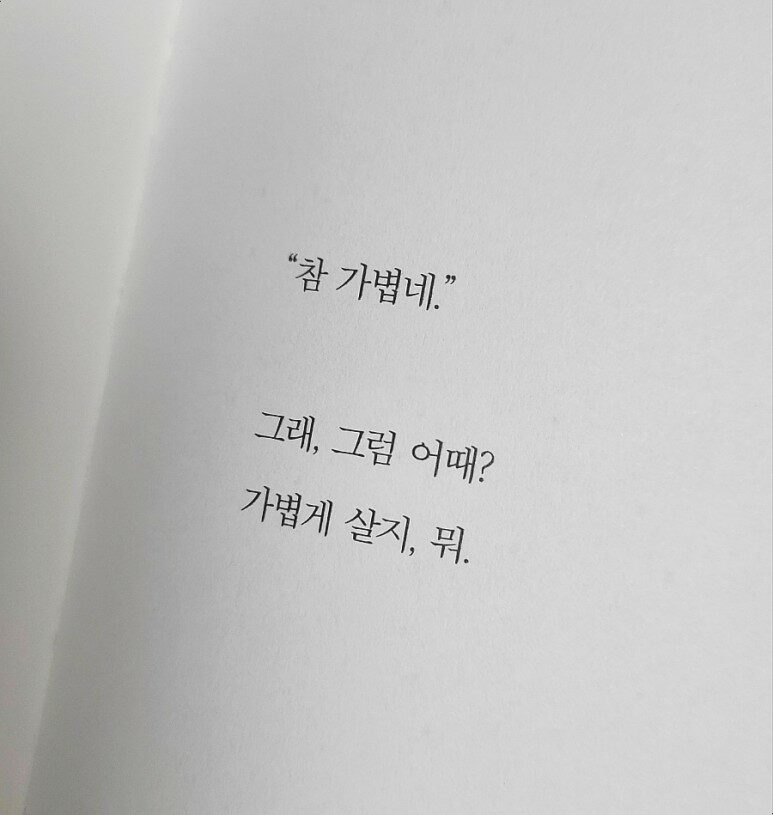 “참 가볍네.”
그래, 그럼 어때?
가볍게 살지, 뭐.